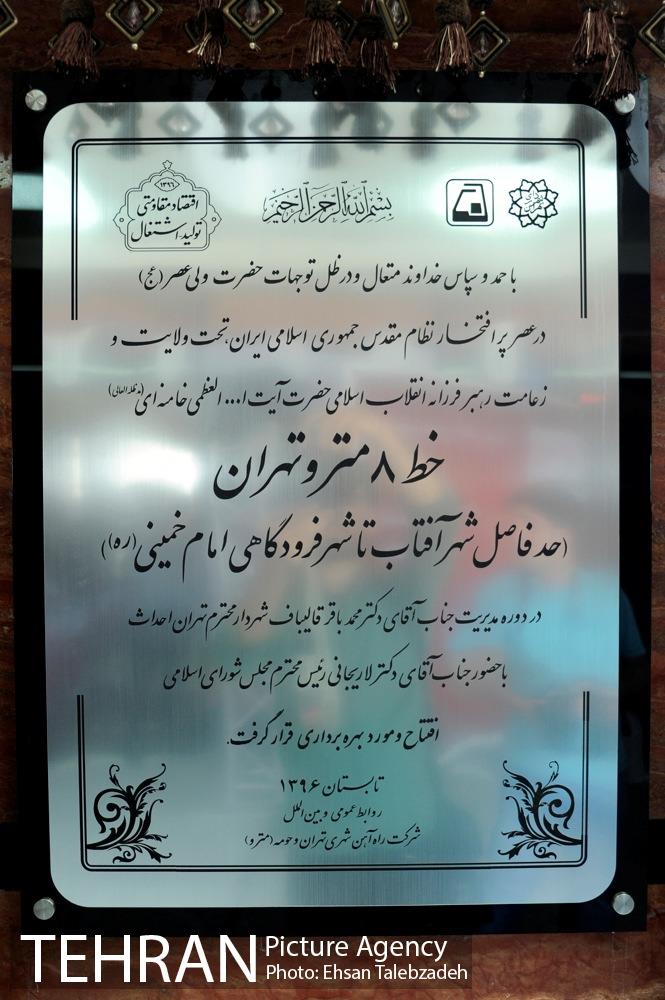 ۱۳۹۶
اقتصاد مقاومتی
تولید اشتغال
بسم الله الرحمن الرحیم
با حمد و سپاس خداوند متعال و در ظل توجهات حضرت ولی عصر (عج)
در عصر پر افتخار نظام مقدس جمهوری اسلامی ایران، تحت ولایت و
زعامت رهبر فرزانه انقلاب اسلامی حضرت آیت ا... العظمی خامنه ای (مدظله العالی)
خط ۸ مترو تهران
(حد فاصل شهر آفتاب تا شهر فرودگاهی امام خمینی (ره))
در دوره مدیریت جناب آقای دکتر محمد باقر قالیباف شهردار محترم تهران احداث
با حضور جناب آقای دکتر لاریجانی رئیس محترم مجلس شورای اسلامی
افتتاح و مورد بهره برداری قرار گرفت.
تابستان ۱۳۹۶
روابط عمومی و بین الملل
شرکت راه آهن شهری تهران و حومه (مترو)
TEHRAN Picture Agency
Photo: Ehsan Talebzadeh